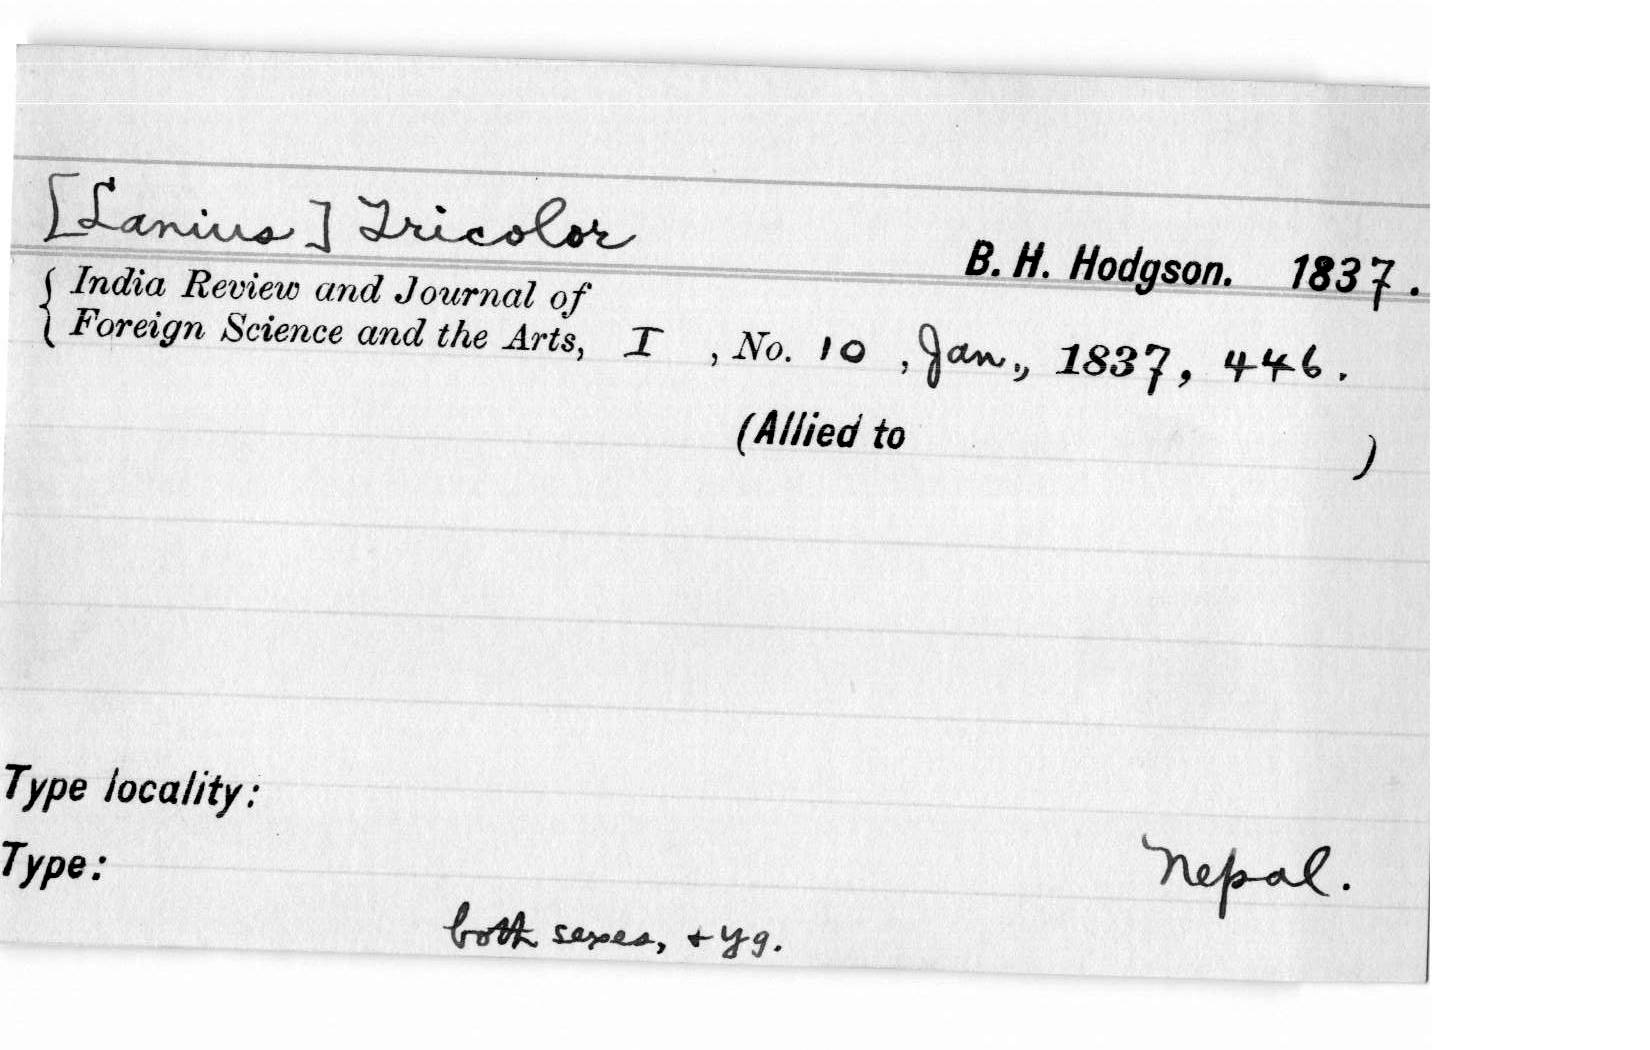 [Lanius] Tricolor
B. H. Hodgson. 1837.
{ India Review and Journal of
Foreign Science and the Arts, I , No. 10 , Jan., 1837, 446.
(Allied to )
Type locality:
Nepal.
Type:
both sexes, + yg.